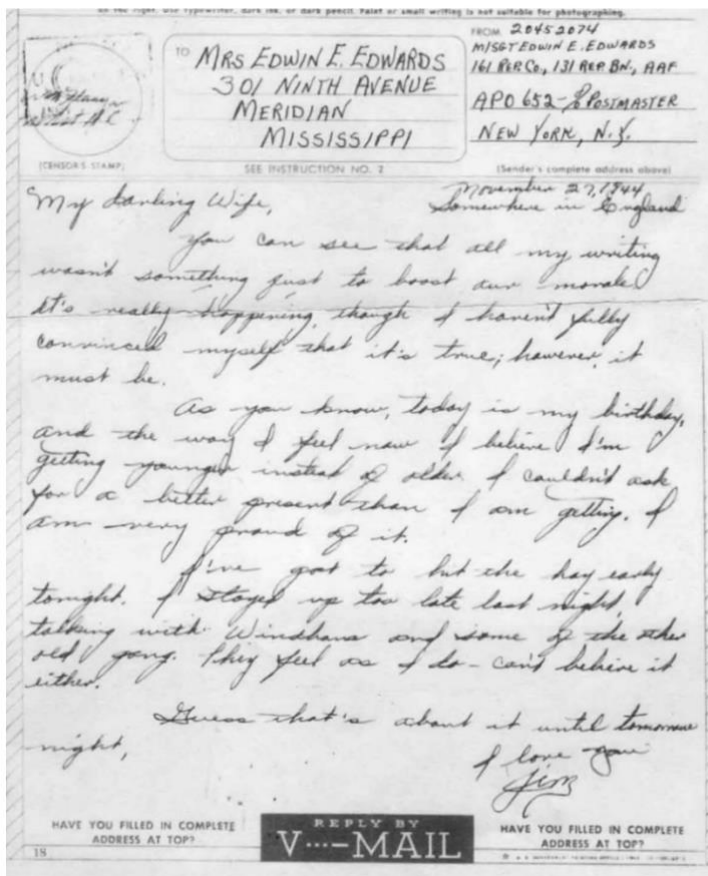 on the right. Use typewriter, dark ink, or dark pencil. Faint or small writing is not suitable for photographing.
TO
MRS EDWIN E. EDWARDS
301 NINTH AVENUE
MERIDIAN
MISSISSIPPI
FROM 20452074
M/SGT EDWIN E. EDWARDS
161 REP CO., 131 REP BN., AAF
APO 652 - % POSTMASTER
NEW YORK, N.Y.
(CENSOR'S STAMP)
SEE INSTRUCTION NO. 2
(Sender's complete address above)
November 27, 1944
My Darling Wife,
Somewhere in England
You can see that all my writing
wasn't something just to boost our morale
It's really happening, though I haven't fully
convinced myself that it's true; however, it
must be.
As you know, today is my birthday,
and the way I feel now I believe I'm
getting younger instead of older. I couldn't ask
for a better present than I am getting. I
am very proud of it.
I've got to hit the hay early
tonight. I stayed up too late last night,
talking with Windham and some of the other
old gang. They feel as I do - can't believe it
either.
Guess that's about it until tomorrow
night,
I love you
Jim
HAVE YOU FILLED IN COMPLETE
ADDRESS AT TOP?
REPLY BY
V···-MAIL
HAVE YOU FILLED IN COMPLETE
ADDRESS AT TOP?
18